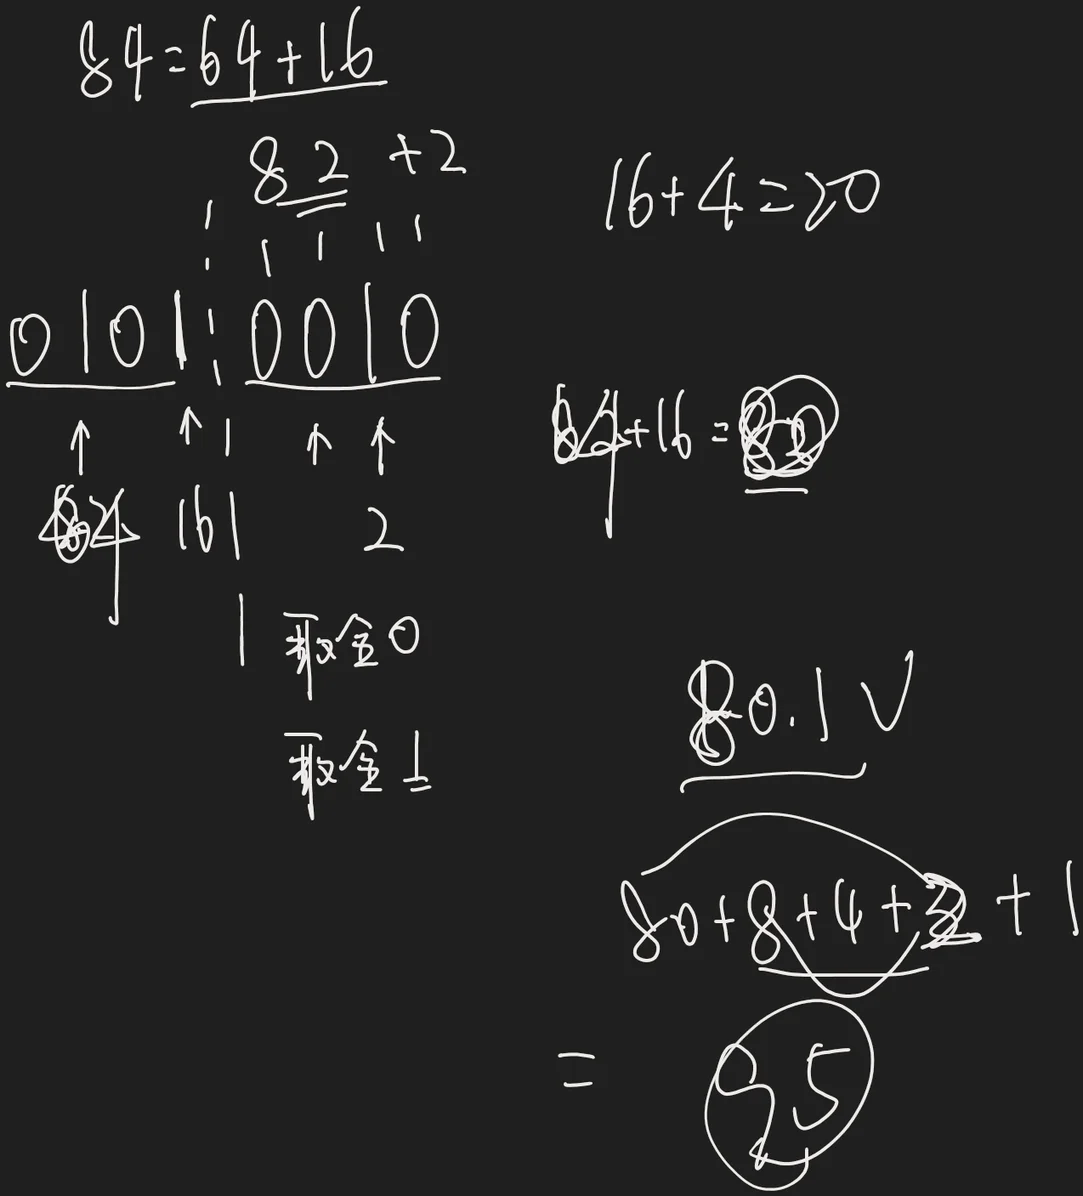 84=64+16
82 +2
16+4=20
1 1 1 1
0101 0010
64+16=80
64 16 2
取全0
取全1
80.1
80+8+4+2+1
=
95